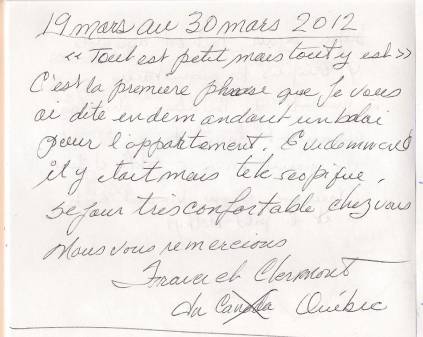 19 mars au 30 mars 2012
« Tout est petit mais tout y est »
C'est la première phrase que je vous
ai dite en demandant un balai
pour l'appartement. Evidemment
il y était mais teléscopique.
Séjour très confortable chez vous
Nous vous remercions
et Clermont
du Canada Québec